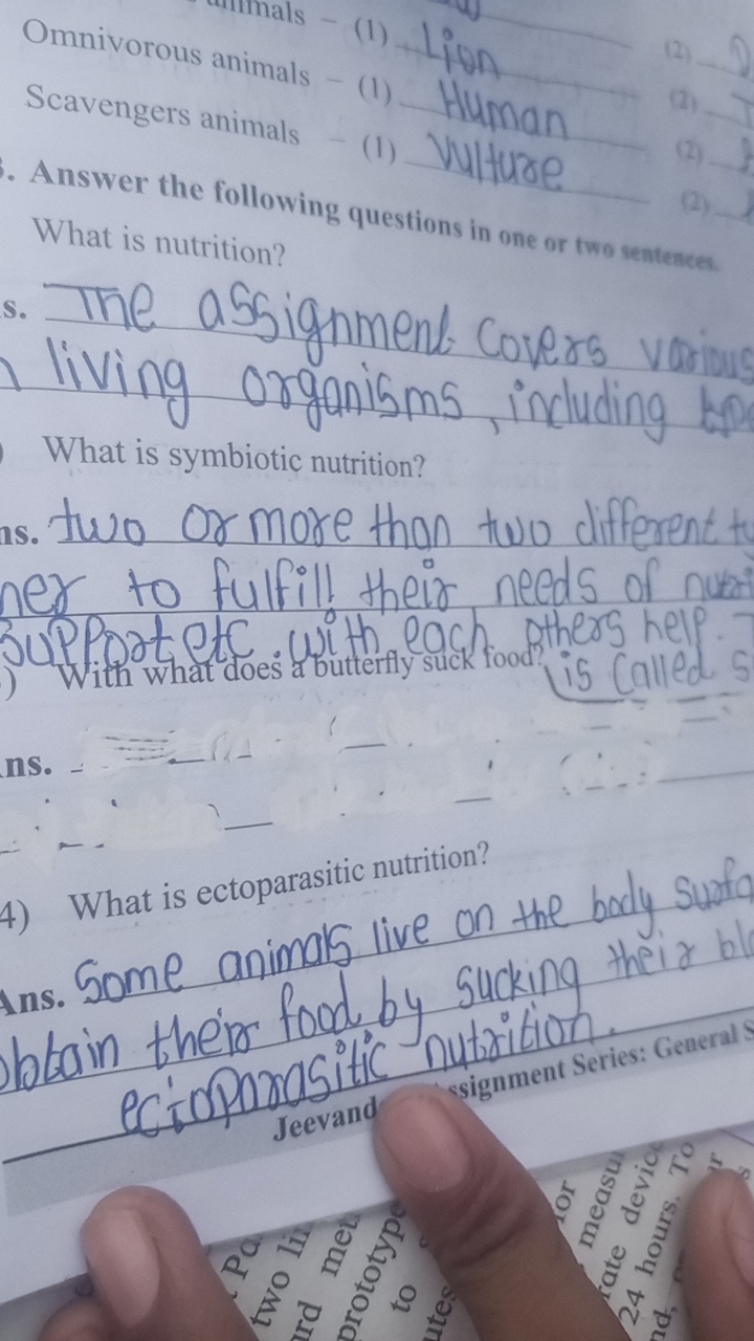 animals - (1) Lion (2)
Omnivorous animals - (1) Human (2)
Scavengers animals - (1) Vulture (2)
(2)
3. Answer the following questions in one or two sentences.
What is nutrition?
s. The assignment covers various
living organisms, including
) What is symbiotic nutrition?
ns. two or more than two different to
her to fulfill their needs of nutri
support etc. with each others help.
) With what does a butterfly suck food? is called s
ns.
4) What is ectoparasitic nutrition?
Ans. Some animals live on the body surfa
obtain their food by sucking their blo
ectoparasitic nutrition.
Jeevand ssignment Series: General S
Pa
two li
rd met
prototype
to
utes
for
measu
rate device
24 hours. To
d,